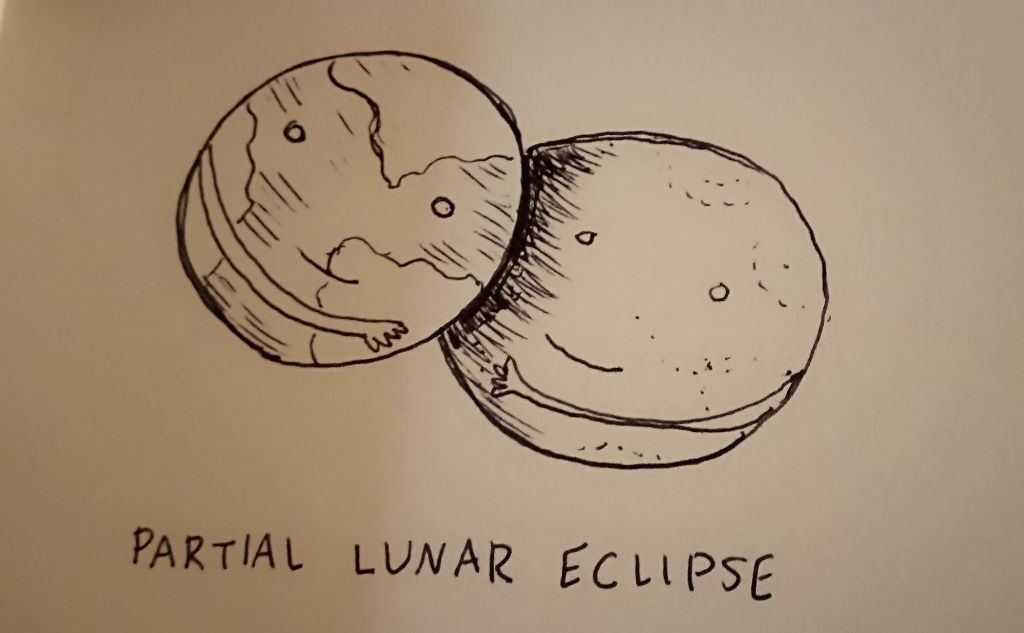 PARTIAL LUNAR ECLIPSE